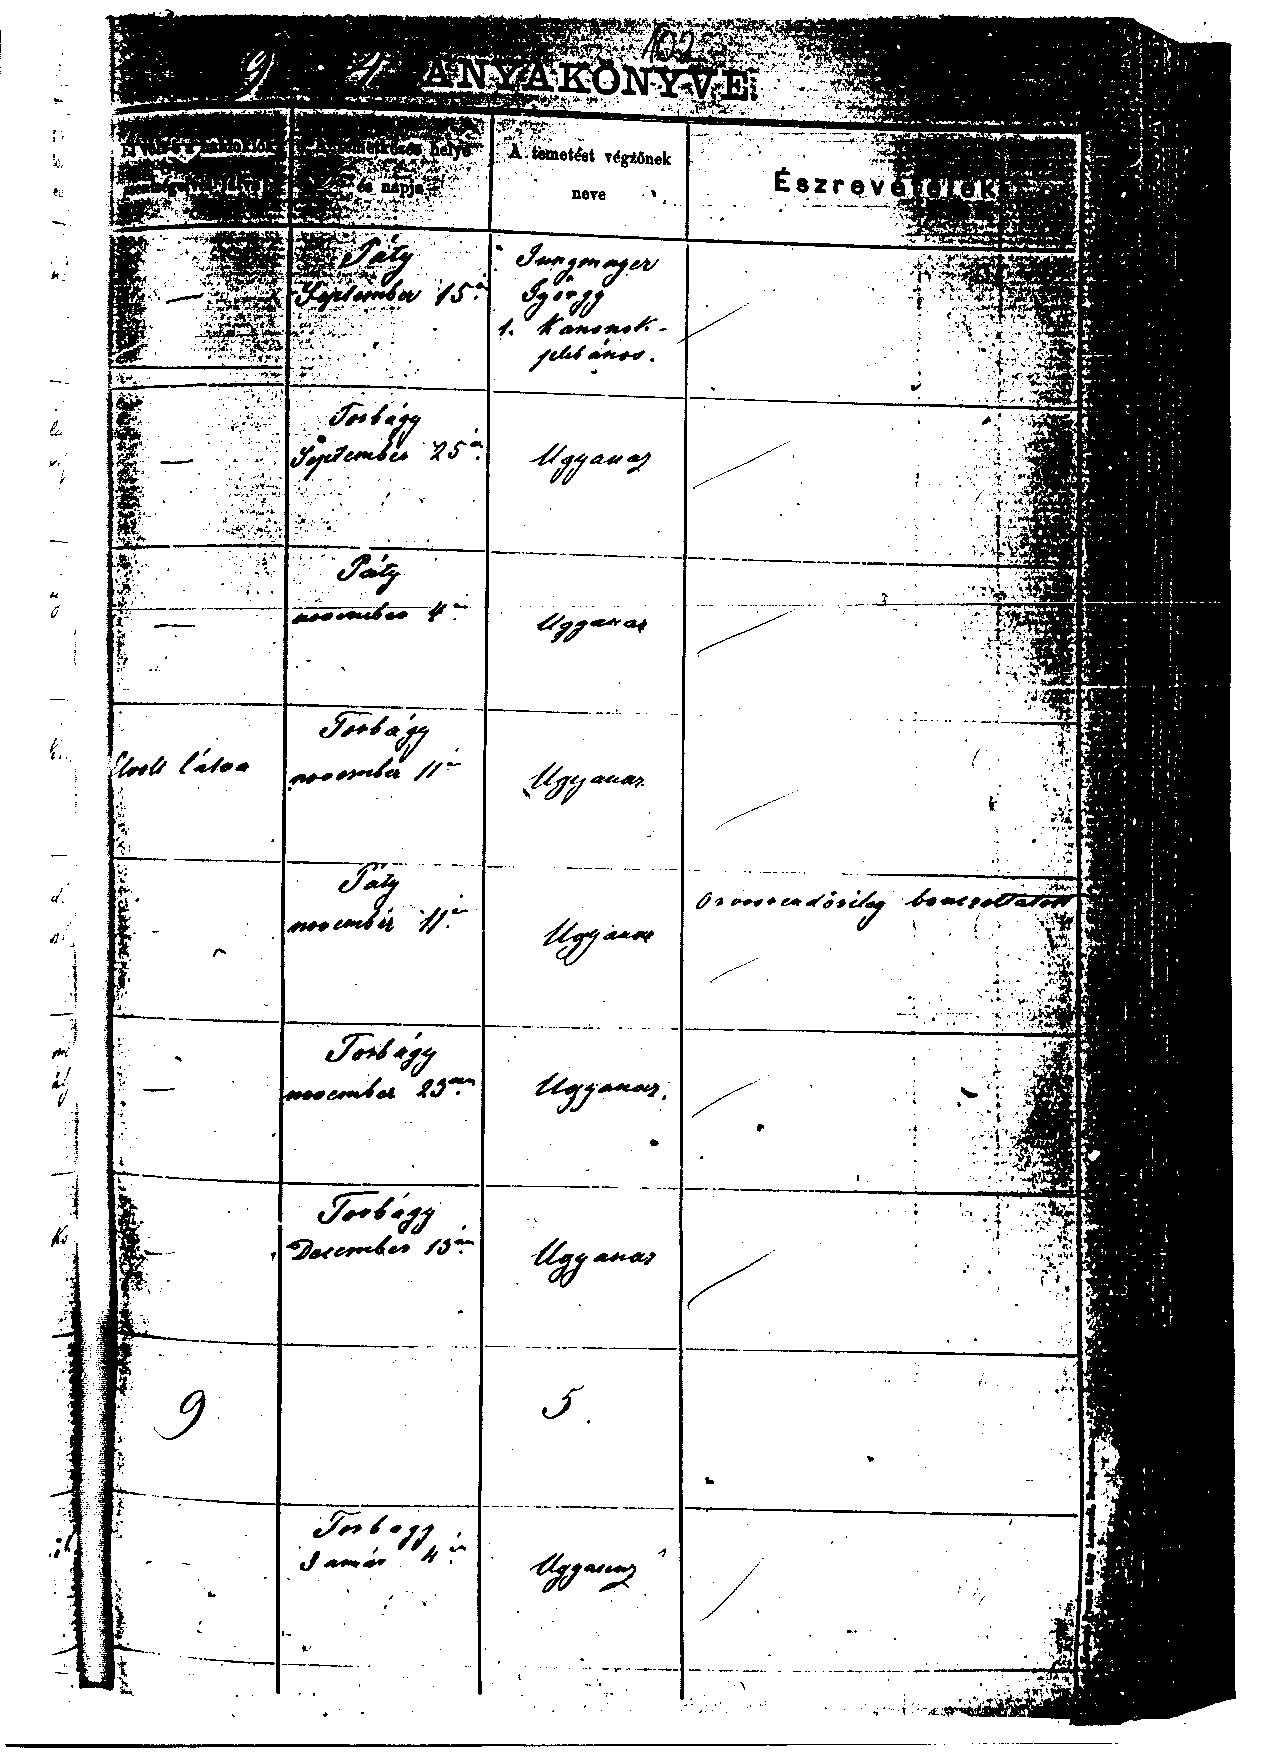 102
9 4 ANYAKÖNYVE.
helye és napja
A temetést végzőnek neve
Észrevételek
—
Páty
September 15én
Jungmayer
György
1. Kanonok-
plébános.
—
Torbágy
September 25én
Ugyanaz
—
Páty
november 4én
Ugyanaz
látva
Torbágy
november 11én
Ugyanaz
Páty
november 11én
Ugyanaz
Orvosrendőrileg bonczoltatott
—
Torbágy
november 23án
Ugyanaz.
—
Torbágy
December 13án
Ugyanaz
9
5.
Torbágy
Január 4én
Ugyanaz